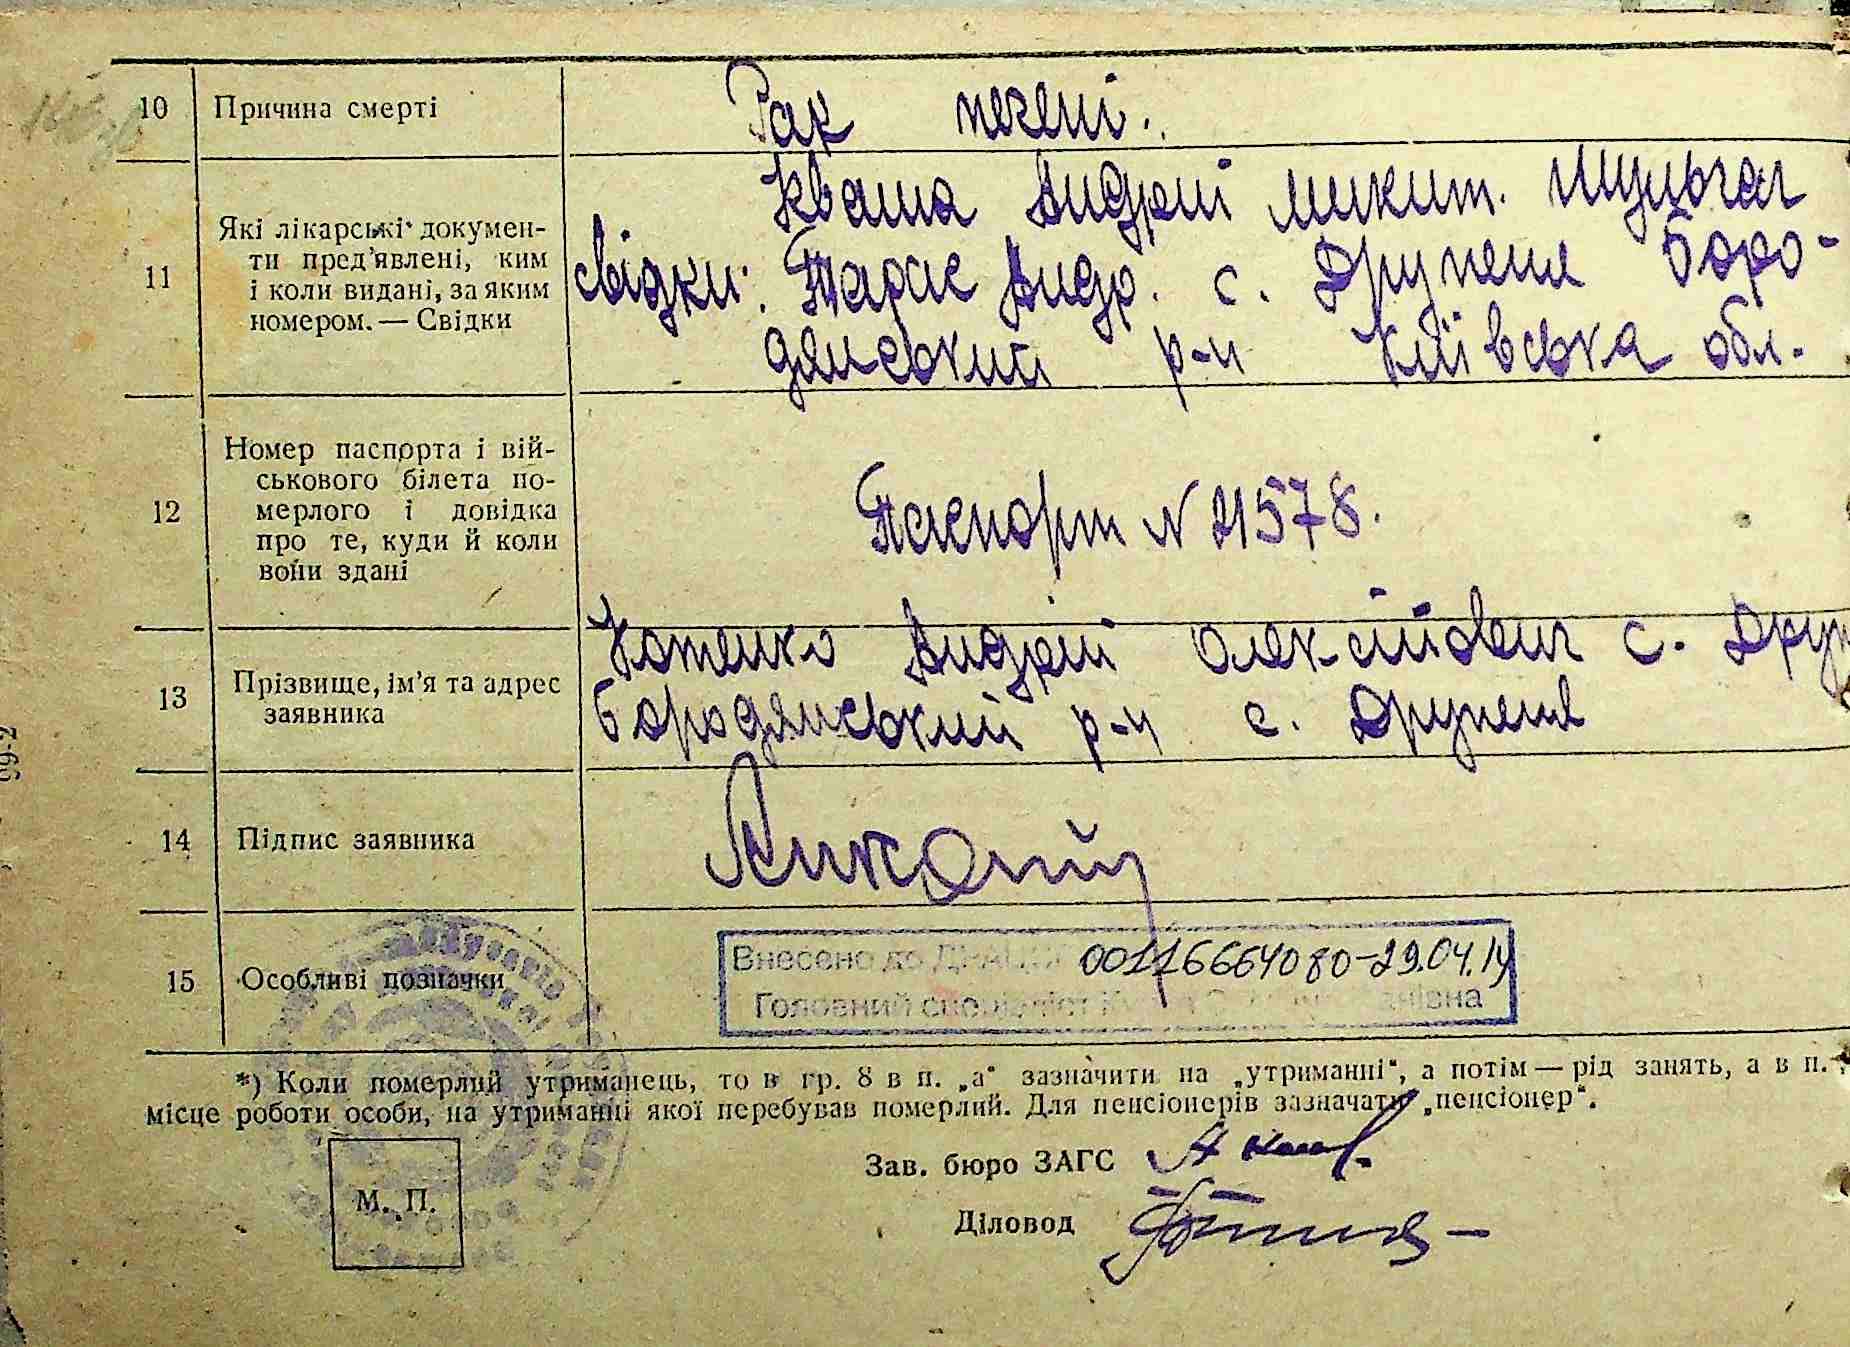 10 Причина смерті Рак печені.
Кваша Андрій Микит. Шульгач
11 Які лікарські документи пред'явлені, ким і коли видані, за яким номером. — Свідки
свідки: Тарас Андр. с. Друценя Боро-
дянський р-н Київська обл.
12 Номер паспорта і вій-
ськового білета по-
мерлого і довідка
про те, куди й коли
вони здані
Паспорт N 21578.
Андрій Олексійович с.
13 Прізвище, ім'я та адрес
заявника
Бородянський р-н с. Друценя
14 Підпис заявника
15 Особливі позначки
Внесено до 00116664080-29.04.14
Головний спеціаліст
*) Коли померлий утриманець, то в гр. 8 в п. „а“ зазначити на „утриманні“, а потім — рід занять, а в п.
місце роботи особи, на утриманні якої перебував померлий. Для пенсіонерів зазначати „пенсіонер“.
Зав. бюро ЗАГС
М. П.
Діловод
99-2